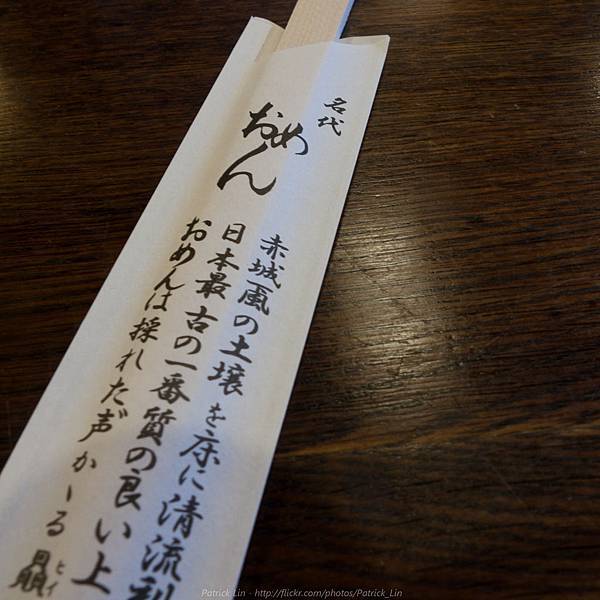 名代
おめん
赤城風の土壌を床に清流利
日本最古の一番質の良い上
おめんは採れた声かゝる
ヒイ
Patrick Lin - http://flickr.com/photos/Patrick_Lin